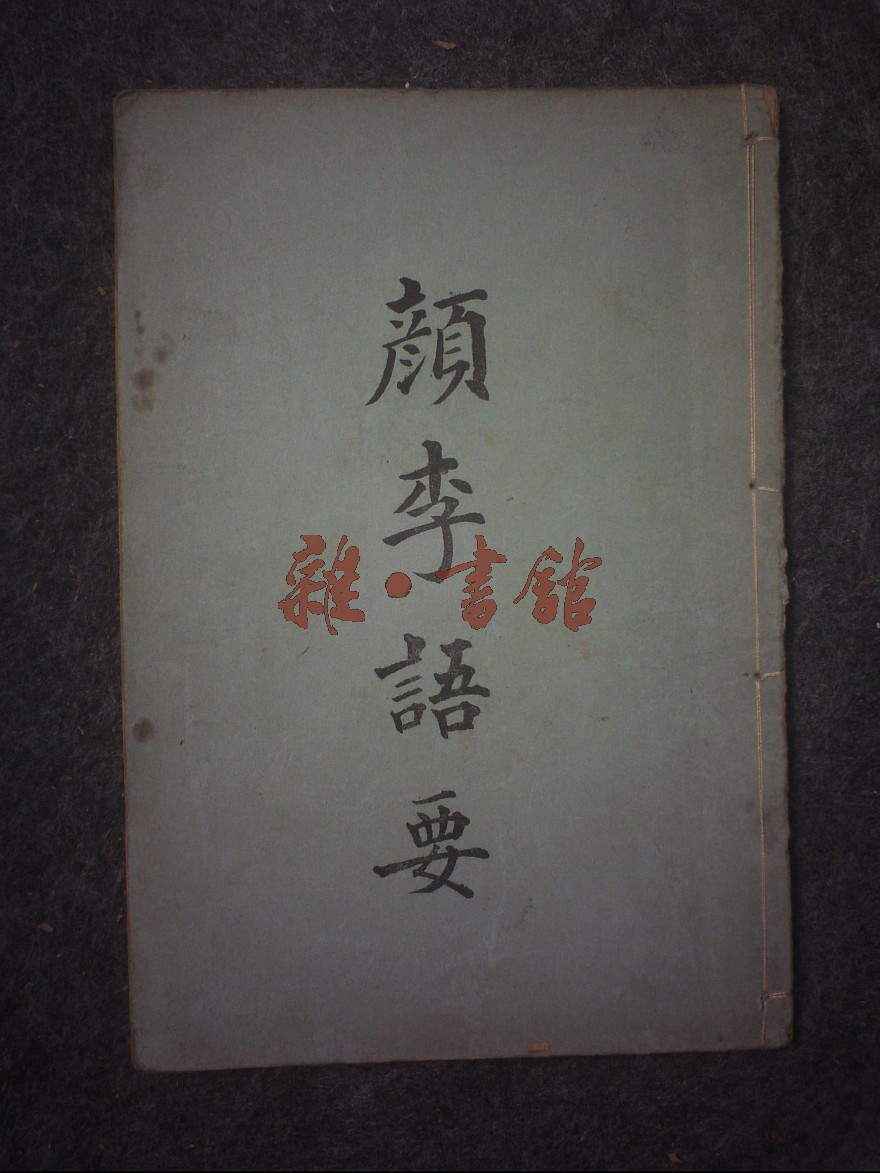 顔李語要
雜·書館